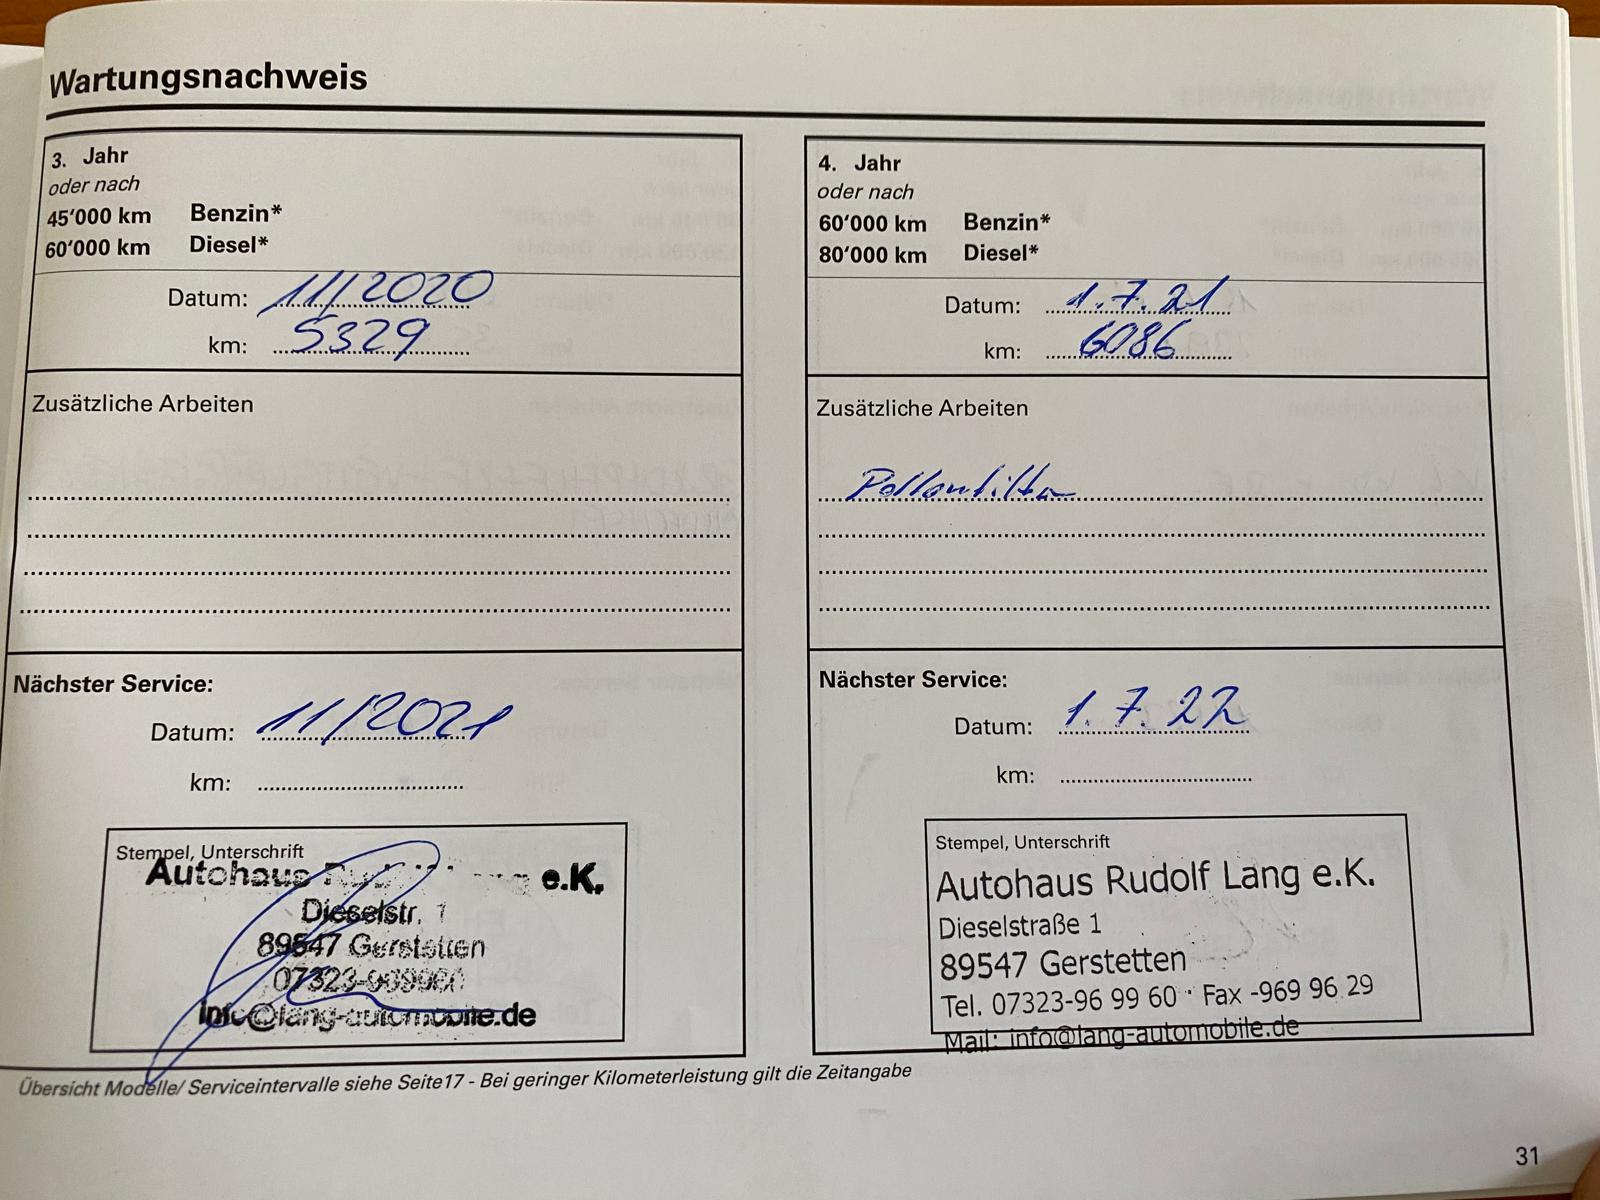 Wartungsnachweis
3. Jahr
oder nach
45'000 km Benzin*
60'000 km Diesel*
Datum: 11/2020
km: 5329
Zusätzliche Arbeiten
Nächster Service:
Datum: 11/2021
km:
Stempel, Unterschrift
Autohaus e.K.
Dieselstr. 1
89547 Gerstetten
info@lang-automobile.de
4. Jahr
oder nach
60'000 km Benzin*
80'000 km Diesel*
Datum: 1.7.21
km: 6086
Zusätzliche Arbeiten
Pollenfilter
Nächster Service:
Datum: 1.7.22
km:
Stempel, Unterschrift
Autohaus Rudolf Lang e.K.
Dieselstraße 1
89547 Gerstetten
Tel. 07323-96 99 60 · Fax -969 96 29
Mail: info@lang-automobile.de
Übersicht Modelle/ Serviceintervalle siehe Seite17 - Bei geringer Kilometerleistung gilt die Zeitangabe
31